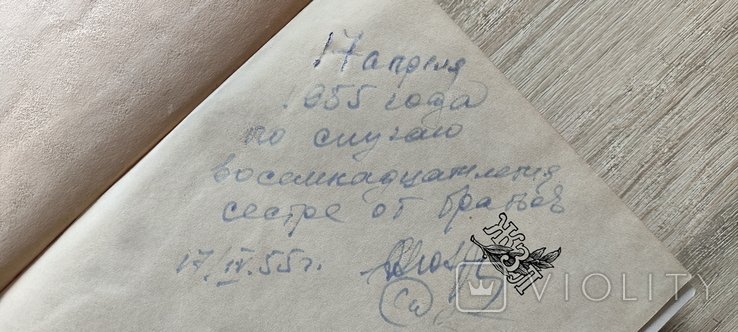 17 апреля
1955 года
по случаю
восемнадцатилетия
сестре от братьев
17/IV.55 г.
ЖЗЛ
VIOLITY